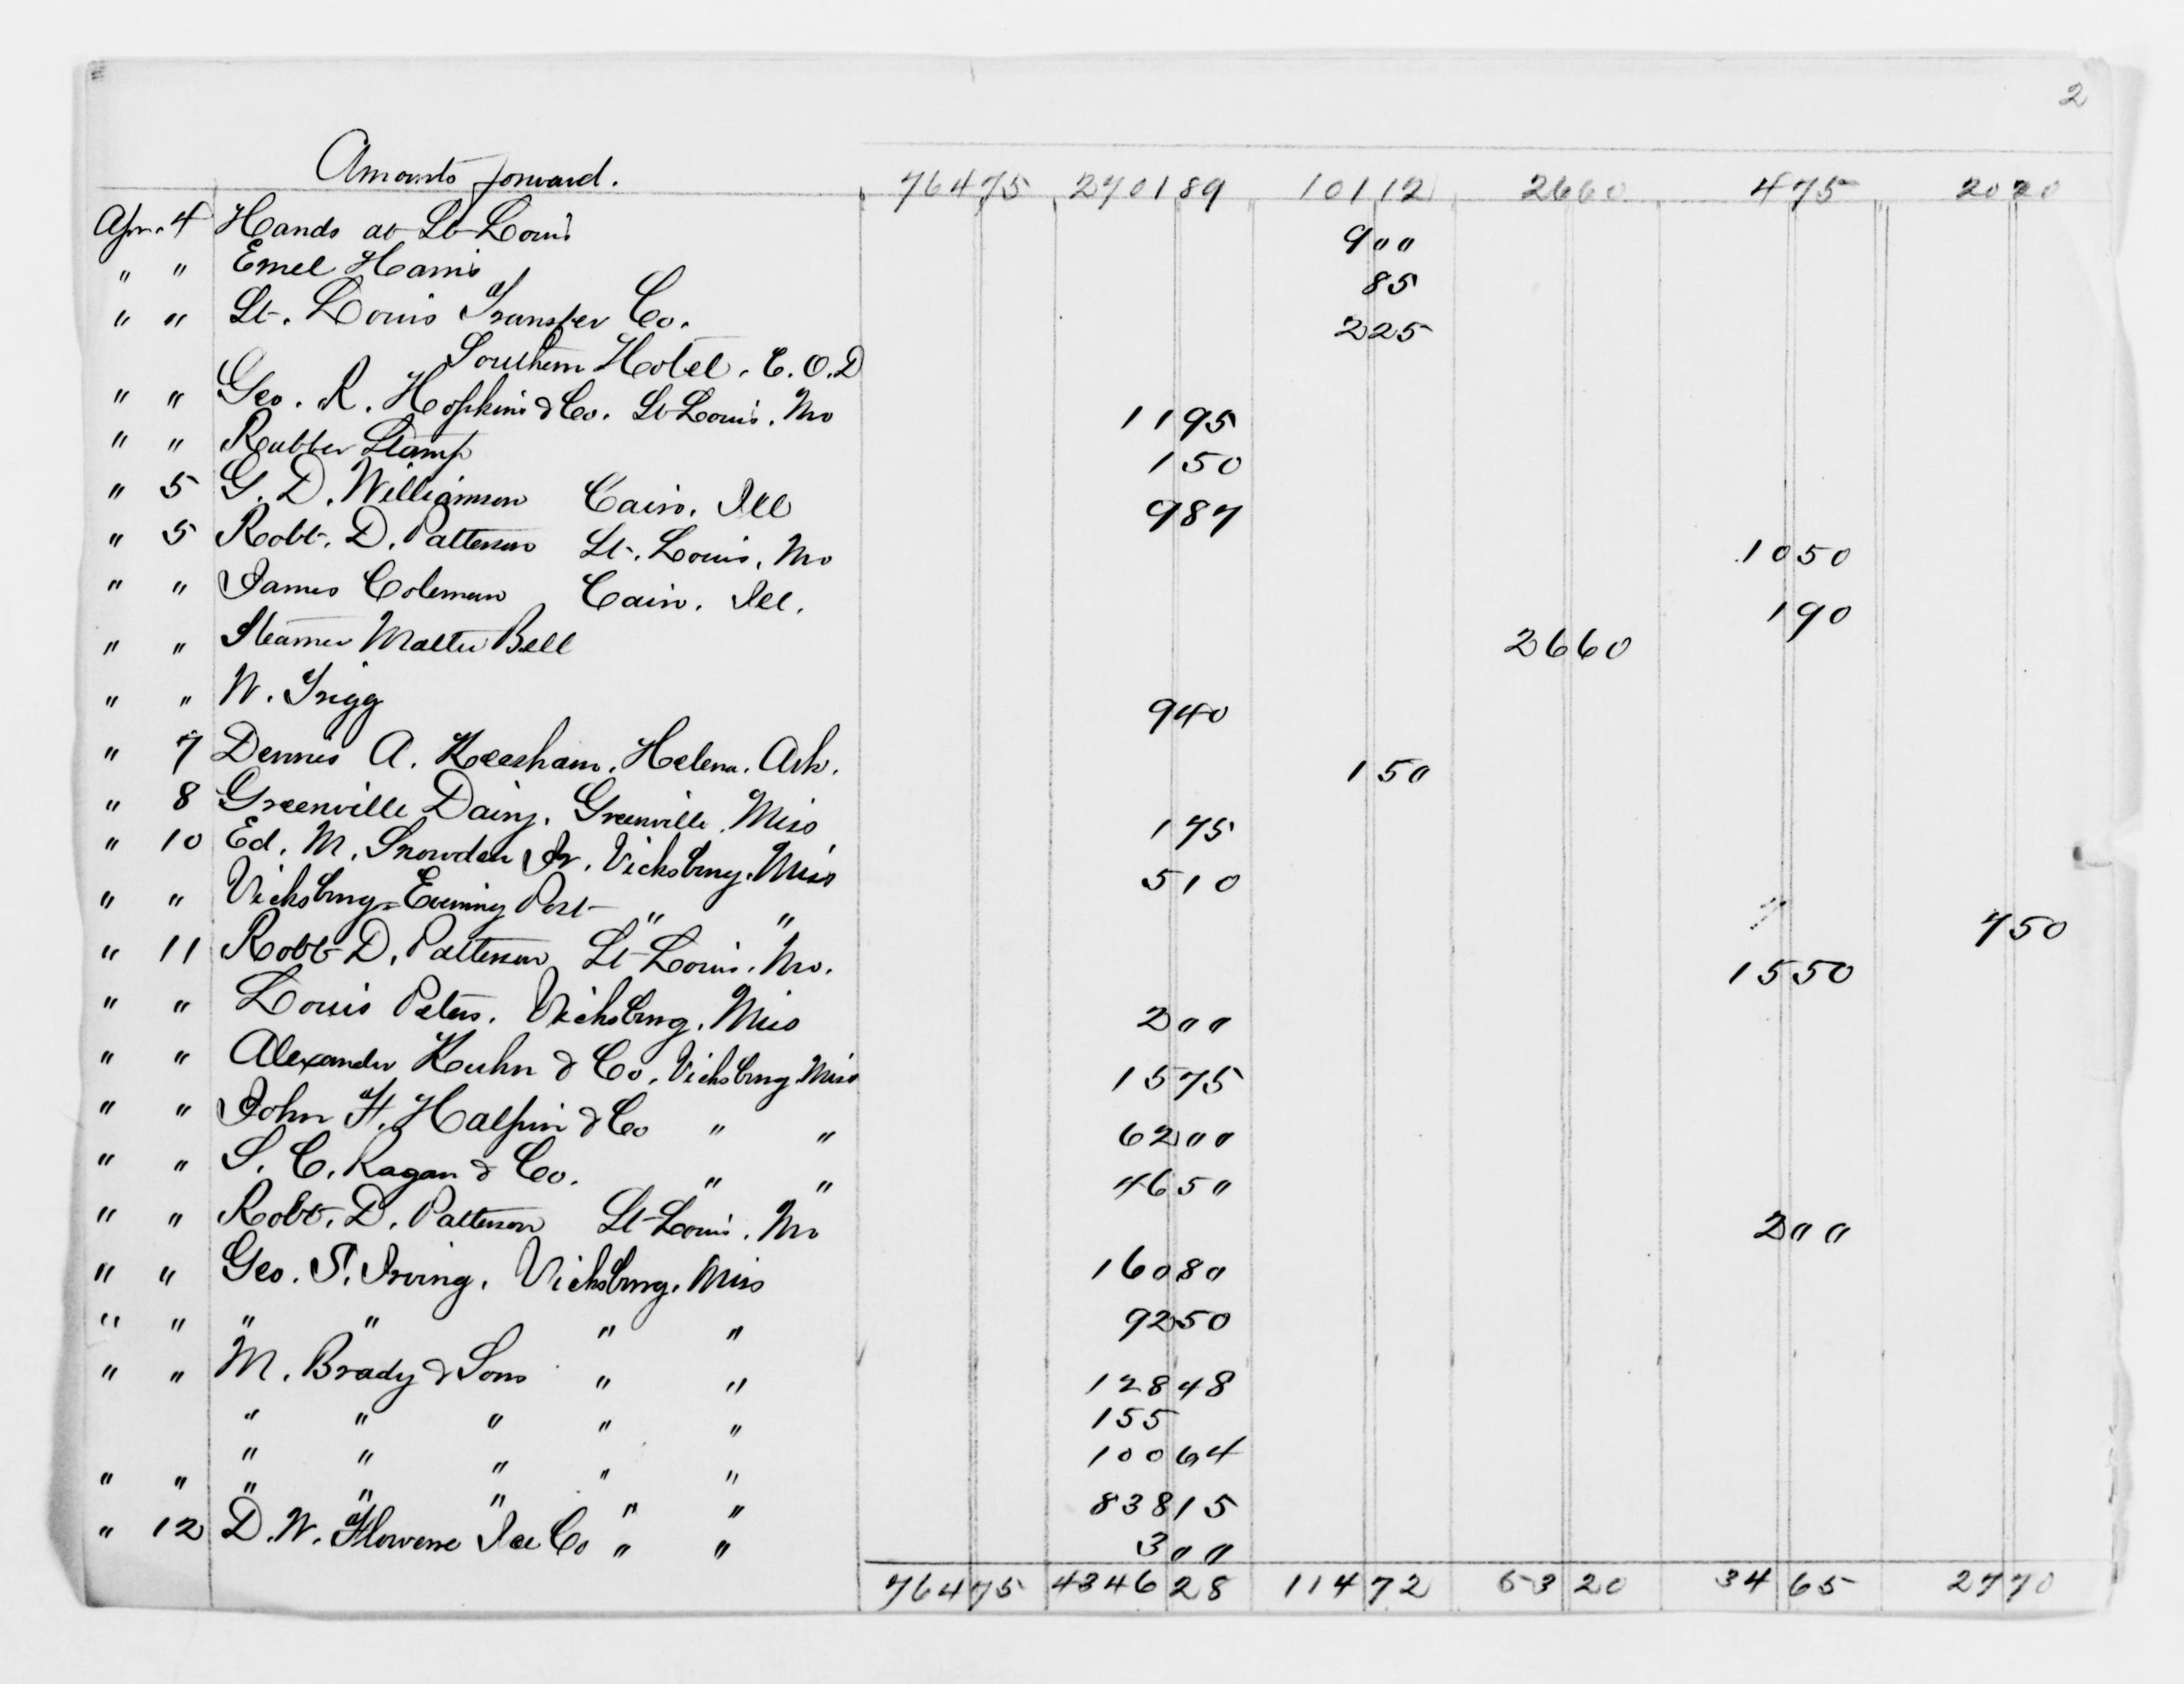 2
Amounts forward. 764 75 2701 89 101 12 26 60 4 75 20 20
Apr. 4 Hands at St Louis 9 00
" " Emel Harris 85
" " St. Louis Transfer Co. 2 25
Southern Hotel. C.O.D
" " Geo. R. Hopkins & Co. St Louis. Mo 11 95
" " Rubber Stamp 1 50
" 5 G. D. Williamson Cairo. Ill 9 87
" 5 Robt. D. Patterson St. Louis. Mo 10 50
" " James Coleman Cairo. Ill. 1 90
" " Steamer Mattie Bell 26 60
" " W. Trigg 9 40
" 7 Dennis A. Keesham. Helena. Ark. 1 50
" 8 Greenville Dairy. Greenville. Miss 1 75
" 10 Ed. M. Snowden Jr. Vicksburg. Miss 5 10
" " Vicksburg Evening Post " " 7 50
" 11 Robt D. Patterson St Louis. Mo. 15 50
" " Louis Peters. Vicksburg. Miss 2 00
" " Alexander Kuhn & Co. Vicksburg Miss 15 75
" " John F. Halpin & Co " " 62 00
" " S. C. Ragan & Co. " " 46 50
" " Robt. D. Patterson St Louis. Mo 2 00
" " Geo. T. Irving. Vicksburg. Miss 160 80
" " " " " " 92 50
" " M. Brady & Sons " " 128 48
" " " " " 155
" " " " " 100 64
" " " " " " " 838 15
" 12 D. W. Flowerree Ice Co " " 3 00
764 75 4346 28 114 72 53 20 34 65 27 70